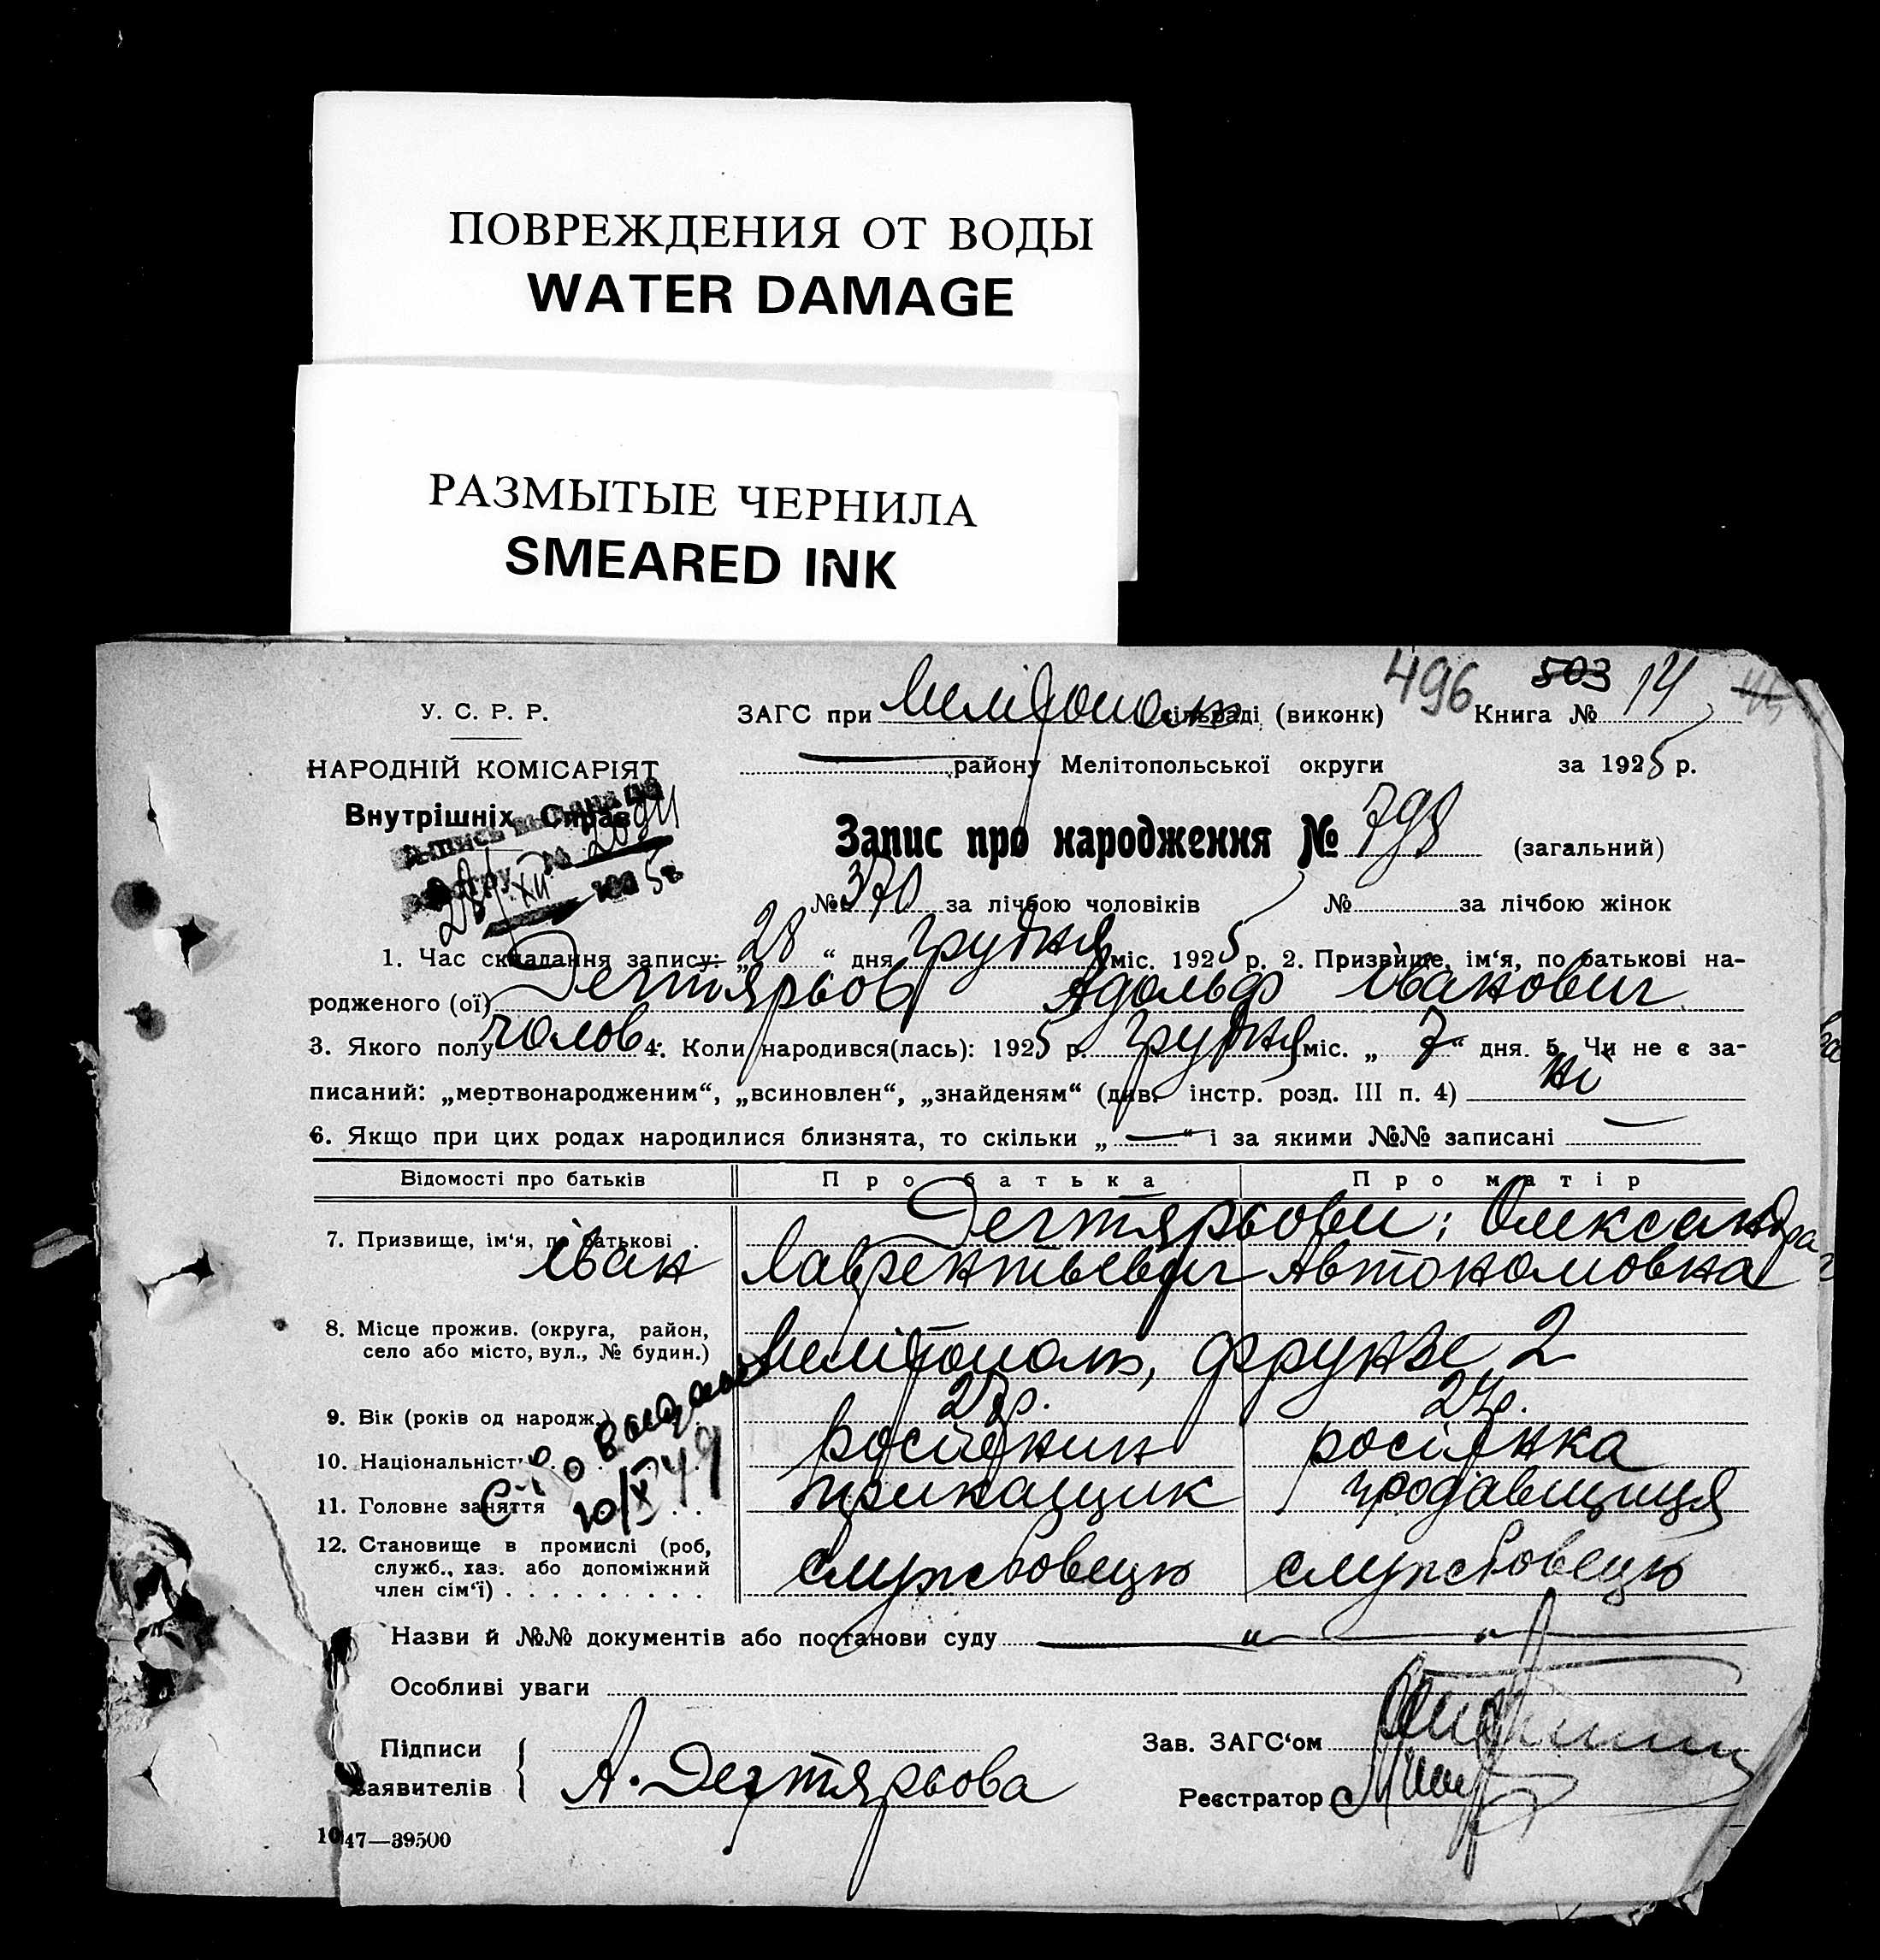 ПОВРЕЖДЕНИЯ ОТ ВОДЫ
WATER DAMAGE
РАЗМЫТЫЕ ЧЕРНИЛА
SMEARED INK
496 503 14
У. С. Р. Р.
ЗАГС при Мелітополь сільраді (виконк) Книга №
НАРОДНІЙ КОМІСАРІЯТ
району Мелітопольської округи за 1925 р.
Внутрішніх Справ
Запис про народження № 798 (загальний)
№ 370 за лічбою чоловіків № за лічбою жінок
1. Час складання запису: „28“ дня грудня міс. 1925 р. 2. Призвище, ім‘я, по батькові на-
родженого (ої) Дегтярьов Адольф Іванович
3. Якого полу чолов 4. Коли народився(лась): 1925 р. грудня міс. „7“ дня. 5. Чи не є за-
писаний: „мертвонародженим“, „всиновлен“, „знайденям“ (див. інстр. розд. III п. 4) ні
6. Якщо при цих родах народилися близнята, то скільки „—“ і за якими №№ записані —
Відомості про батьків Про батька Про матір
Дегтярьови: Олександра
7. Призвище, ім‘я, по батькові
Іван Лаврентьевич Автономовна
8. Місце прожив. (округа, район,
село або місто, вул., № будин.)
Мелітополь, Фрунзе 2
9. Вік (років од народж.) 27р. 24р.
10. Національність росіянин росіянка
11. Головне заняття прикащик продавщиця
10/X 49
12. Становище в промислі (роб,
служб., хаз. або допоміжний
член сім‘ї)
службовець службовець
Назви й №№ документів або постанови суду — „ — „ —
Особливі уваги
Підписи
заявителів
А. Дегтярьова
Зав. ЗАГС‘ом
Реєстратор
1047—39500